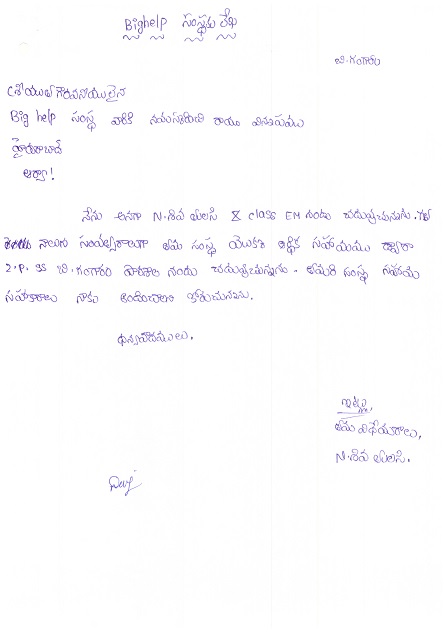 Bighelp సంస్థకు లేఖ
బి.గంగారం
శ్రీయుత గౌరవనీయులైన
Big help సంస్థ వారికి నమస్కరించి రాయు విన్నపము
హైదరాబాద్
ఆర్యా!
నేను అనగా N.శివ తులసి X class EM నందు చదువుచున్నాను. గత
నాలుగు సంవత్సరాలుగా తమ సంస్థ యొక్క ఆర్థిక సహాయము ద్వారా
Z.P. SS బి.గంగారం పాఠశాల నందు చదువుచున్నాను. సంస్థ సహాయ
సహకారాలు నాకు అందించాలని కోరుచున్నాను.
ధన్యవాదములు.
ఇట్లు,
తమ విధేయురాలు,
N.శివ తులసి.